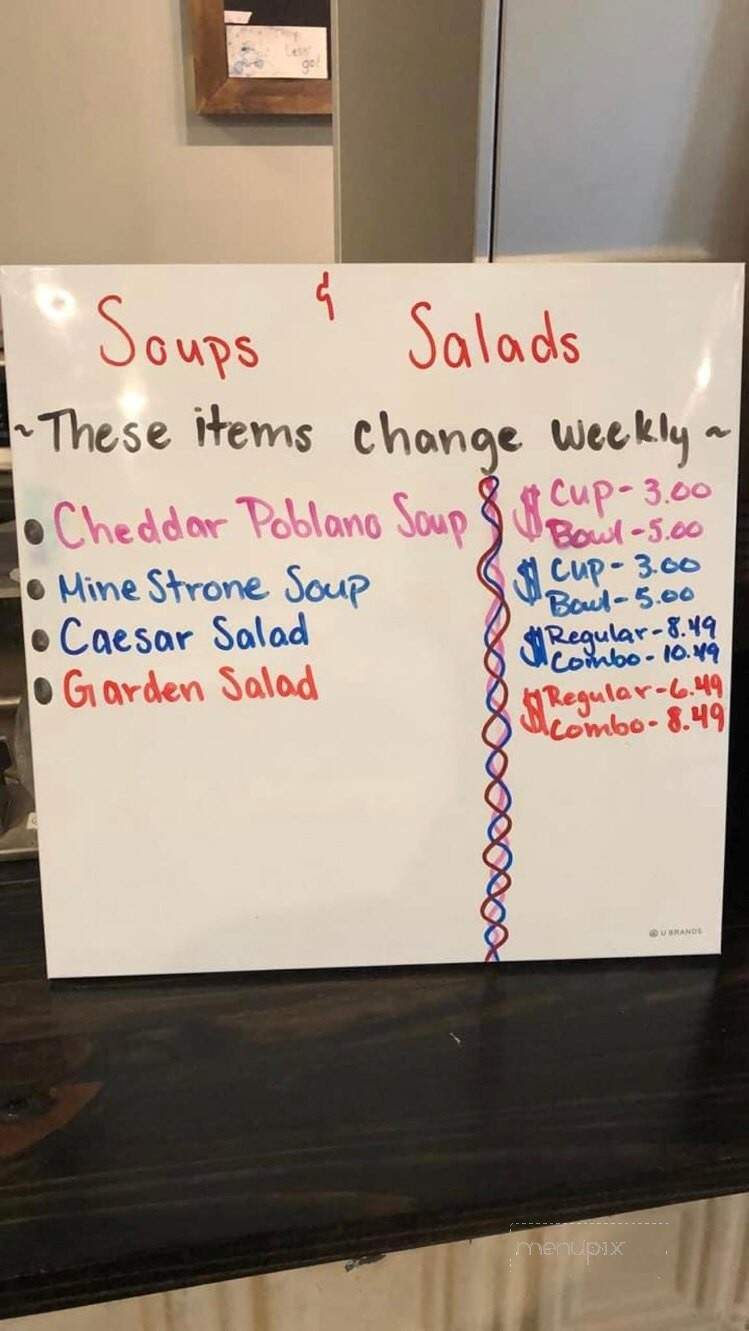 Less go!
Soups & Salads
~These items change weekly~
Cheddar Poblano Soup $ Cup-3.00
Bowl-5.00
MineStrone Soup $ Cup-3.00
Bowl-5.00
Caesar Salad $ Regular-8.49
Combo-10.49
Garden Salad $ Regular-6.49
Combo-8.49
U BRANDS
menupix